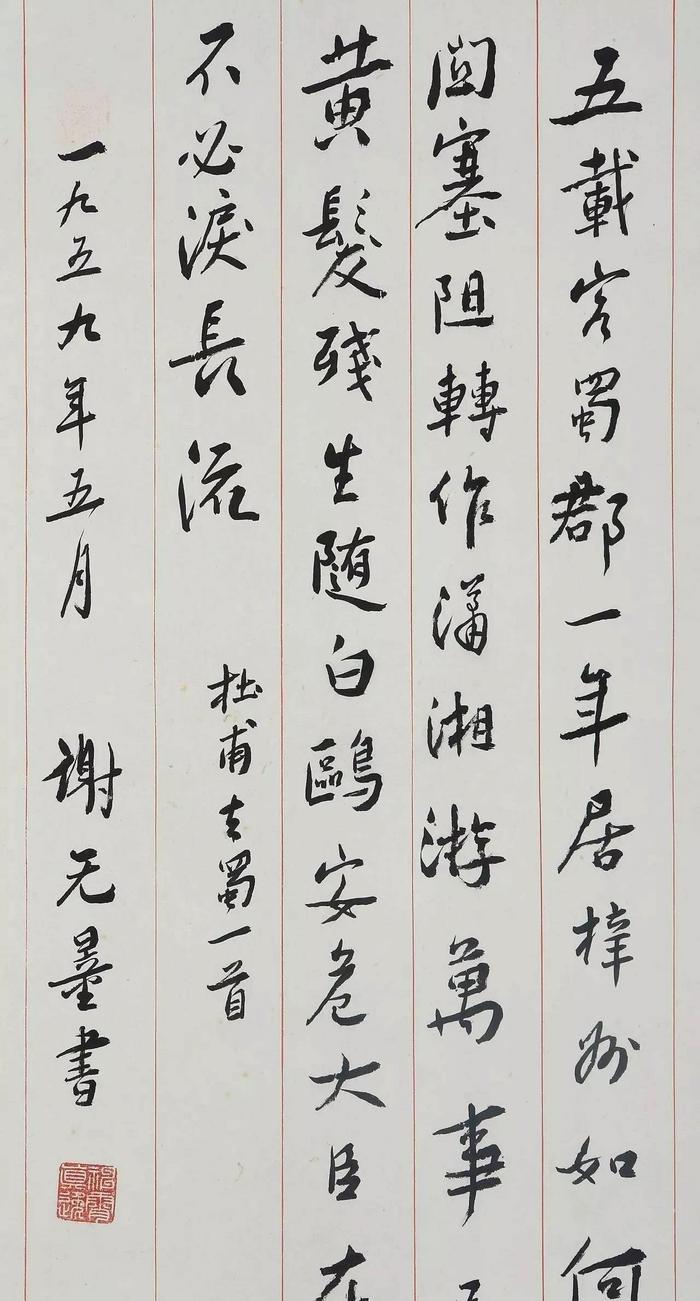 五載客蜀郡一年居梓州如何
関塞阻轉作瀟湘游萬事
黃髮殘生隨白鷗安危大臣在
不必淚長流
杜甫去蜀一首
一九五九年五月 謝无量書